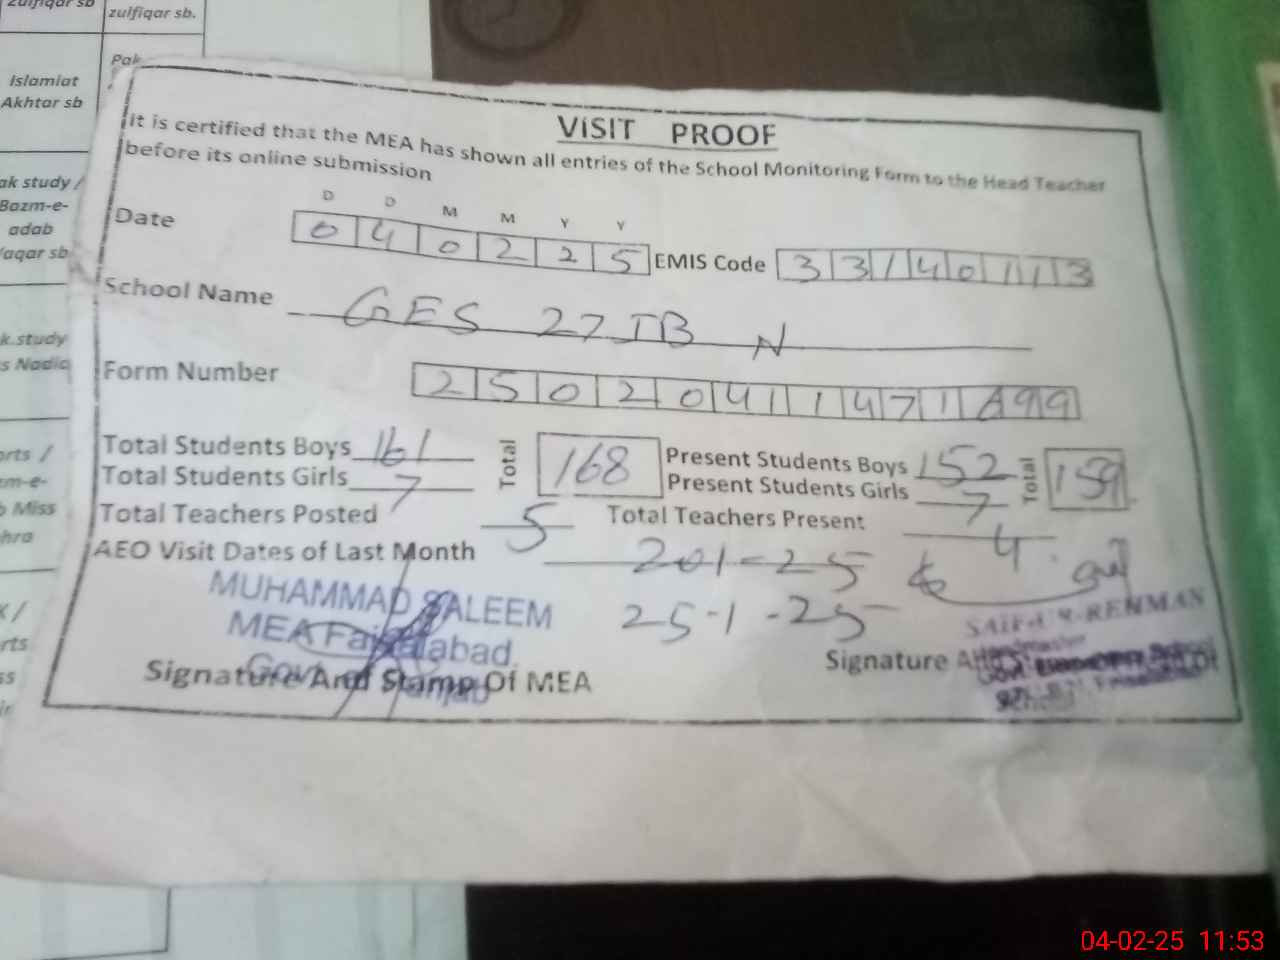 zulfiqar sb
zulfiqar sb.
Islamiat
Akhtar sb
Pak
ak study /
Bazm-e-
adab
aqar sb
k.study
s Nadia
orts /
Miss
hra
rts
VISIT PROOF
It is certified that the MEA has shown all entries of the School Monitoring Form to the Head Teacher
before its online submission
D D M M Y Y
Date 0 4 0 2 2 5 EMIS Code 3 3 1 4 0 1 1 3
School Name GES 27 JB N
Form Number 2 5 0 2 0 4 1 1 4 7 1 9 9
Total Students Boys 161 Total 168 Present Students Boys 152 Total 159
Total Students Girls 7 Present Students Girls 7
Total Teachers Posted 5 Total Teachers Present 4
AEO Visit Dates of Last Month 201-25
25-1-25
MUHAMMAD SALEEM
MEA Faisalabad
SAIF-UR-REHMAN
Headmaster
Signature And Stamp Of MEA
Signature
04-02-25 11:53